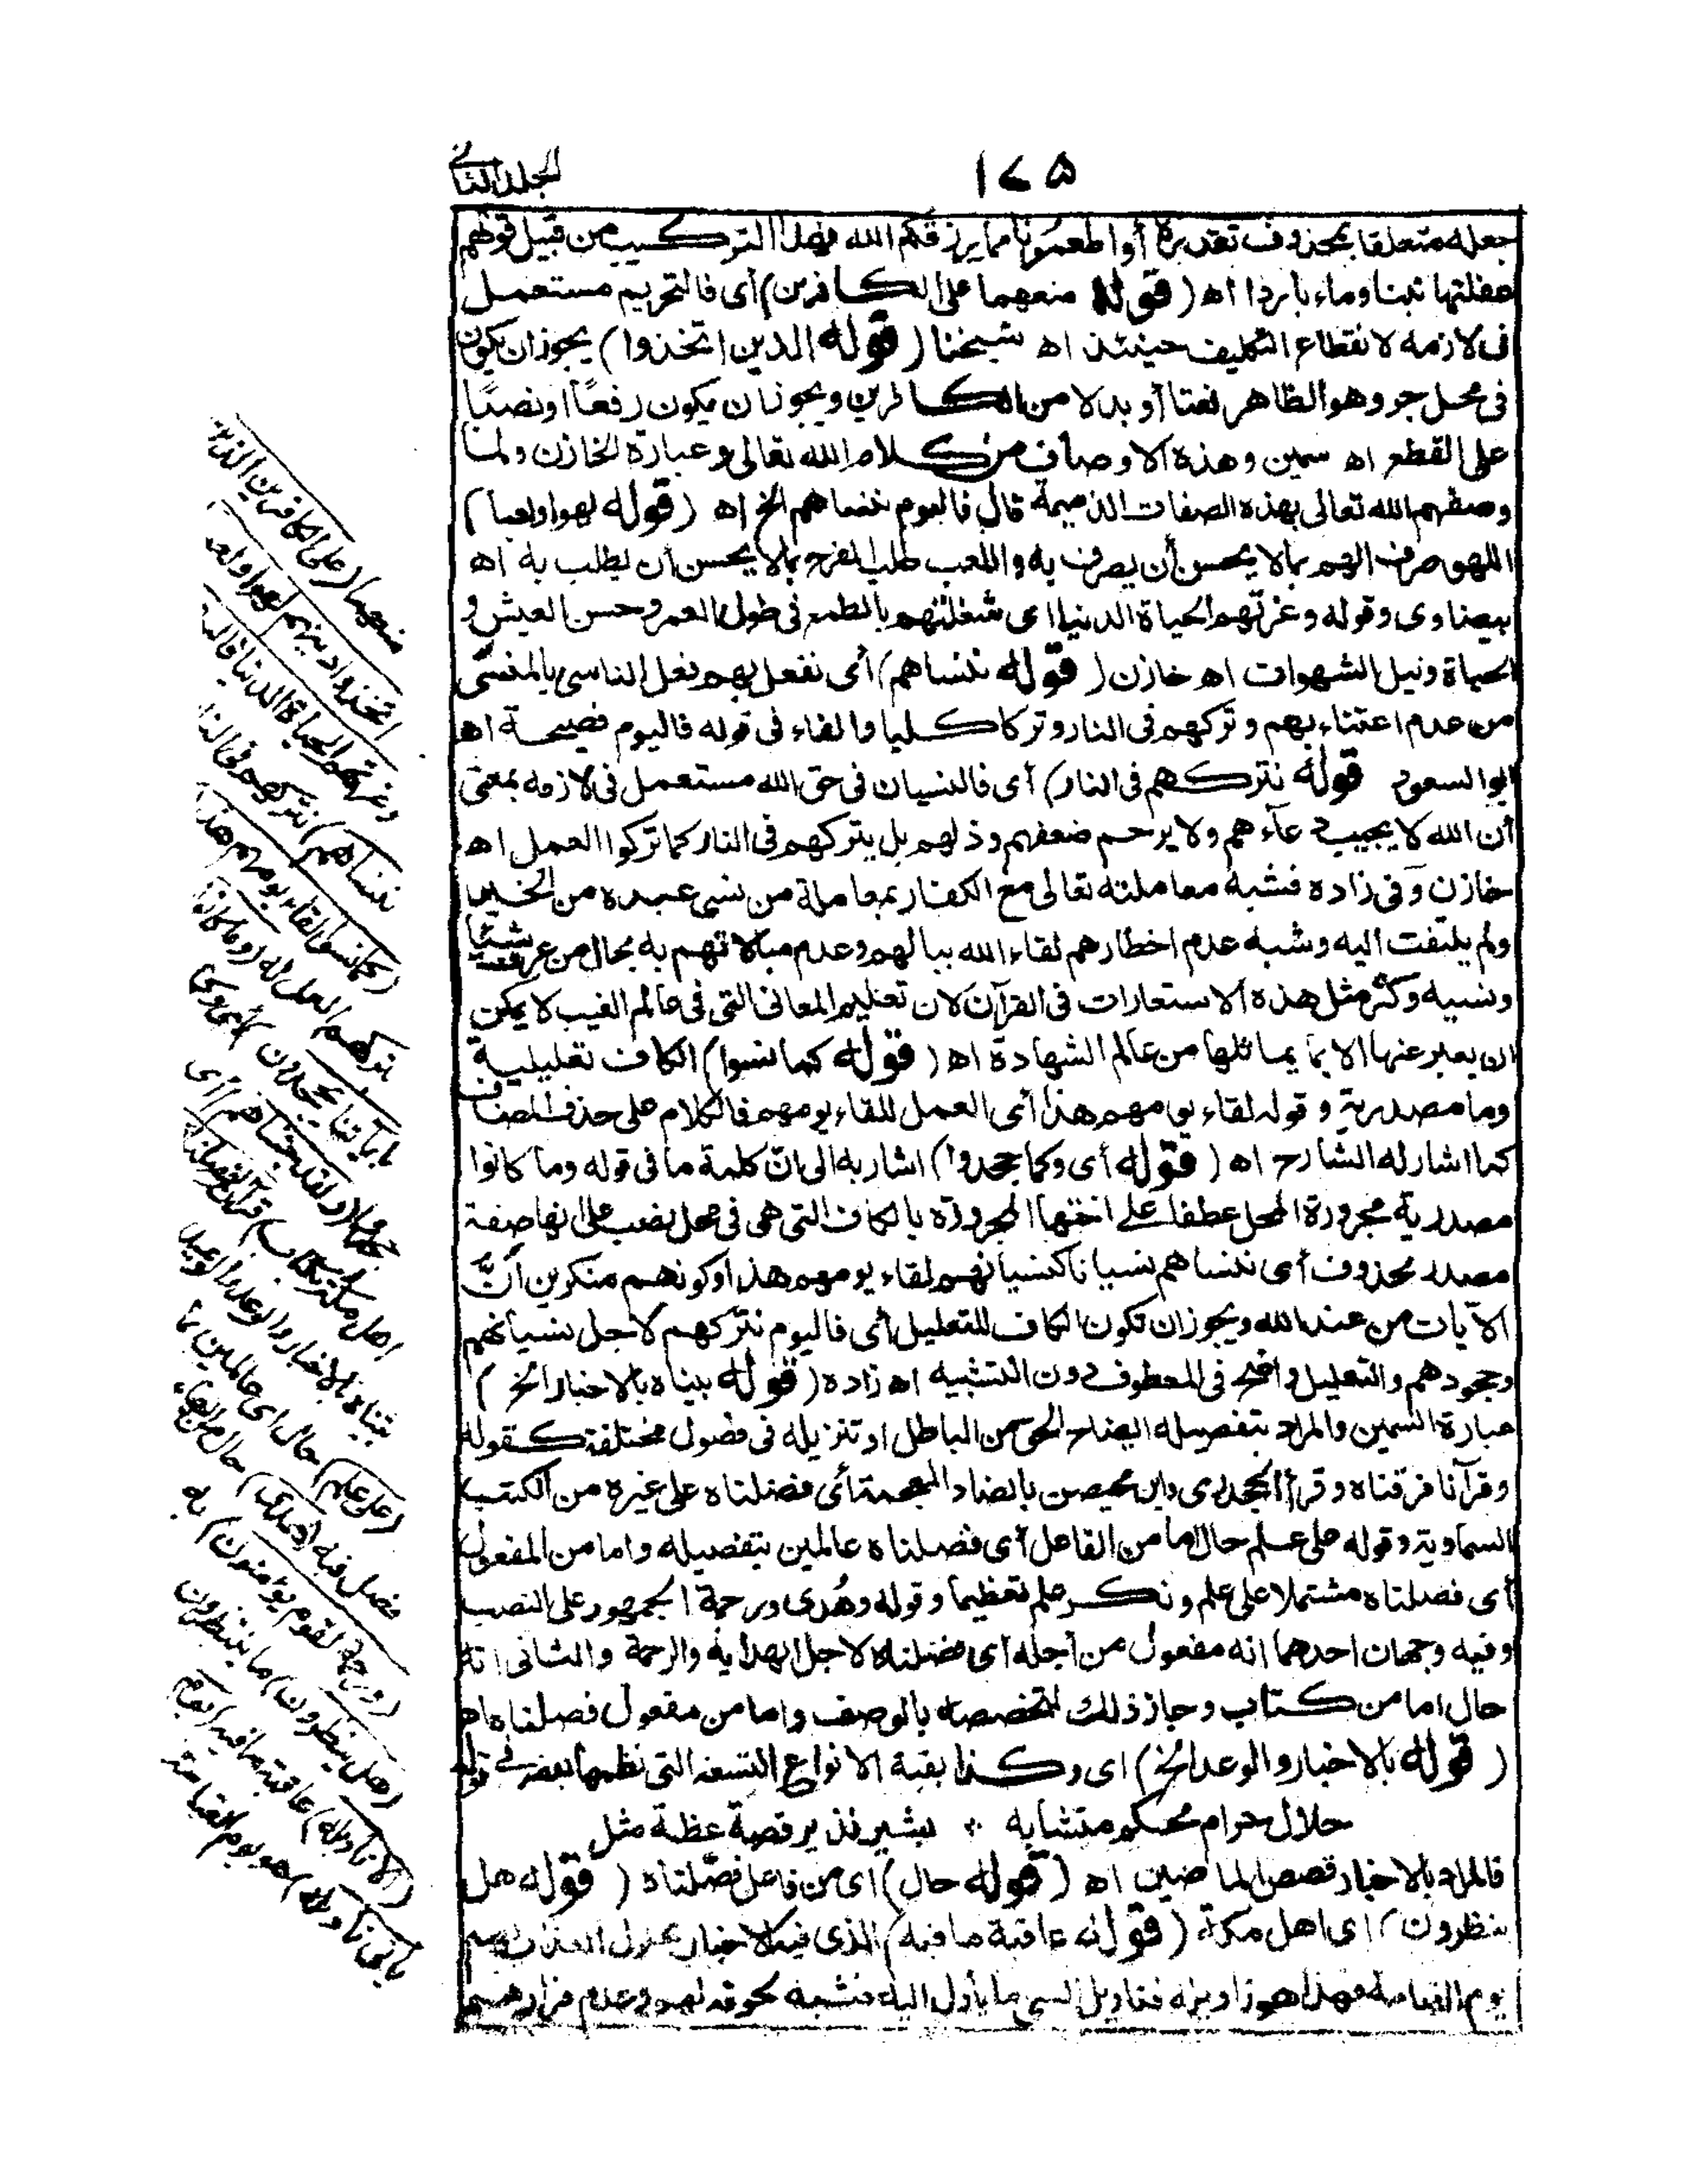 ١٧٥
المجلد الثانى
جعله متعلقا بمحذوف تقديره أو أطعمونا مما يرزقكم الله فهذا التركيب من قبيل قولهم
علفتها تبنا وماء باردا اه (قوله منعهما على الكافرين) أى فالتحريم مستعمل
فى لازمه لانقطاع التكليف حينئذ اه شيخنا (قوله الذين اتخذوا) يجوز ان يكون
فى محل جر وهو الظاهر نعتا أو بدلا من الكافرين ويجوز ان يكون رفعًا او نصبًا
على القطع اه سمين وهذه الاوصاف من كلام الله تعالى وعبارة الخازن ولما
وصفهم الله تعالى بهذه الصفات الذميمة قال فاليوم ننساهم الخ اه (قوله لهوا ولعبا)
اللهو صرف الهم بما لا يحسن أن يصرف به واللعب طلب الفرح بما لا يحسن أن يطلب به اه
بيضاوى وقوله وغرتهم الحياة الدنيا اى شغلتهم بالطمع فى طول العمر وحسن العيش و
الحياة ونيل الشهوات اه خازن (قوله ننساهم) أى نفعل بهم فعل الناسى بالمنسى
من عدم اعتناء بهم وتركهم فى النار وتركا كليا والفاء فى قوله فاليوم فصيحة اه
ابو السعود قوله نتركهم فى النار) أى فالنسيان فى حق الله مستعمل فى لازمه بمعنى
أن الله لا يجيب دعآءهم ولا يرحم ضعفهم وذلهم بل يتركهم فى النار كما تركوا العمل اه
خازن وفى زاده فشبه معاملته تعالى مع الكفار بمعاملة من نسى عبده من الخير
ولم يلتفت اليه وشبه عدم اخطارهم لقاء الله ببالهم وعدم مبالاتهم به بحال من عرف شيئا
ونسيه وكثر مثل هذه الاستعارات فى القرآن لان تعليم المعانى التى فى عالم الغيب لا يمكن
ان يعبر عنها الا بما يماثلها من عالم الشهادة اه (قوله كما نسوا) الكاف تعليلية
وما مصدرية وقوله لقاء يومهم هذا أى العمل للقاء يومهم فالكلام على حذف المضاف
كما اشار له الشارح اه (قوله أى وكما جحدوا) اشار به الى انّ كلمة ما فى قوله وما كانوا
مصدرية مجرورة المحل عطفا على اختها المجرورة بالكاف التى هى فى محل نصب على انها صفة
مصدر محذوف أى ننساهم نسيانا كنسيانهم لقاء يومهم هذا وكونهم منكرين أنّ
الآيات من عند الله ويجوز ان تكون الكاف للتعليل أى فاليوم نتركهم لاجل نسيانهم
وجحودهم والتعليل واضح فى المعطوف دون التشبيه اه زاده (قوله بيناه بالاخبار الخ)
عبارة السمين والمراد بتفصيله ايضاح الحق من الباطل او تنزيله فى فصول مختلفة كقوله
وقرآنا فرقناه وقرأ الجحدرى وابن محيصن بالضاد المعجمة أى فضلناه على غيره من الكتب
السماوية وقوله على علم حال اما من الفاعل أى فصلناه عالمين بتفصيله واما من المفعول
أى فصلناه مشتملا على علم ونكر علم تعظيما وقوله وهُدى ورحمة الجمهور على النصب
وفيه وجهان احدهما انه مفعول من أجله أى فصلناه لاجل الهداية والرحمة والثانى انه
حال اما من كتاب وجاز ذلك لتخصصه بالوصف واما من مفعول فصلناه اه
(قوله بالاخبار والوعد الخ) اى وكذا بقية الانواع التسعة التى نظمها بعضهم فى قوله
حلال حرام محكم متشابه * بشير نذير قصة عظة مثل
فالمراد بالاخبار قصص الماضين اه (قوله حال) اى من فاعل فصّلناه (قوله هل
ينظرون) اى اهل مكة (قوله عاقبة ما فيه) الذى فيه الاخبار بحلول العذاب بهم
يوم القيامة فهذا هو تاويله فتاويل الشىء ما يأول اليه فشبه
منعهما (على الكافرين الذين
اتخذوا دينهم لهوا ولعبا
وغرتهم الحياة الدنيا فاليوم
ننساهم) نتركهم فى النار
(كما نسوا لقاء يومهم هذا)
بتركهم العمل له (وما كانوا
بآياتنا يجحدون)
(ولقد جئناهم) أى
اهل مكة (بكتاب) قرآن (فصلناه)
بيناه بالاخبار والوعد والوعيد
(على علم) حال اى عالمين بما
فصل فيه (هدى) حال من الهاء
(ورحمة لقوم يؤمنون) به
(هل ينظرون) ما ينتظرون
(الا تاويله) عاقبة ما فيه (يوم
يأتى تاويله) هو يوم القيامة